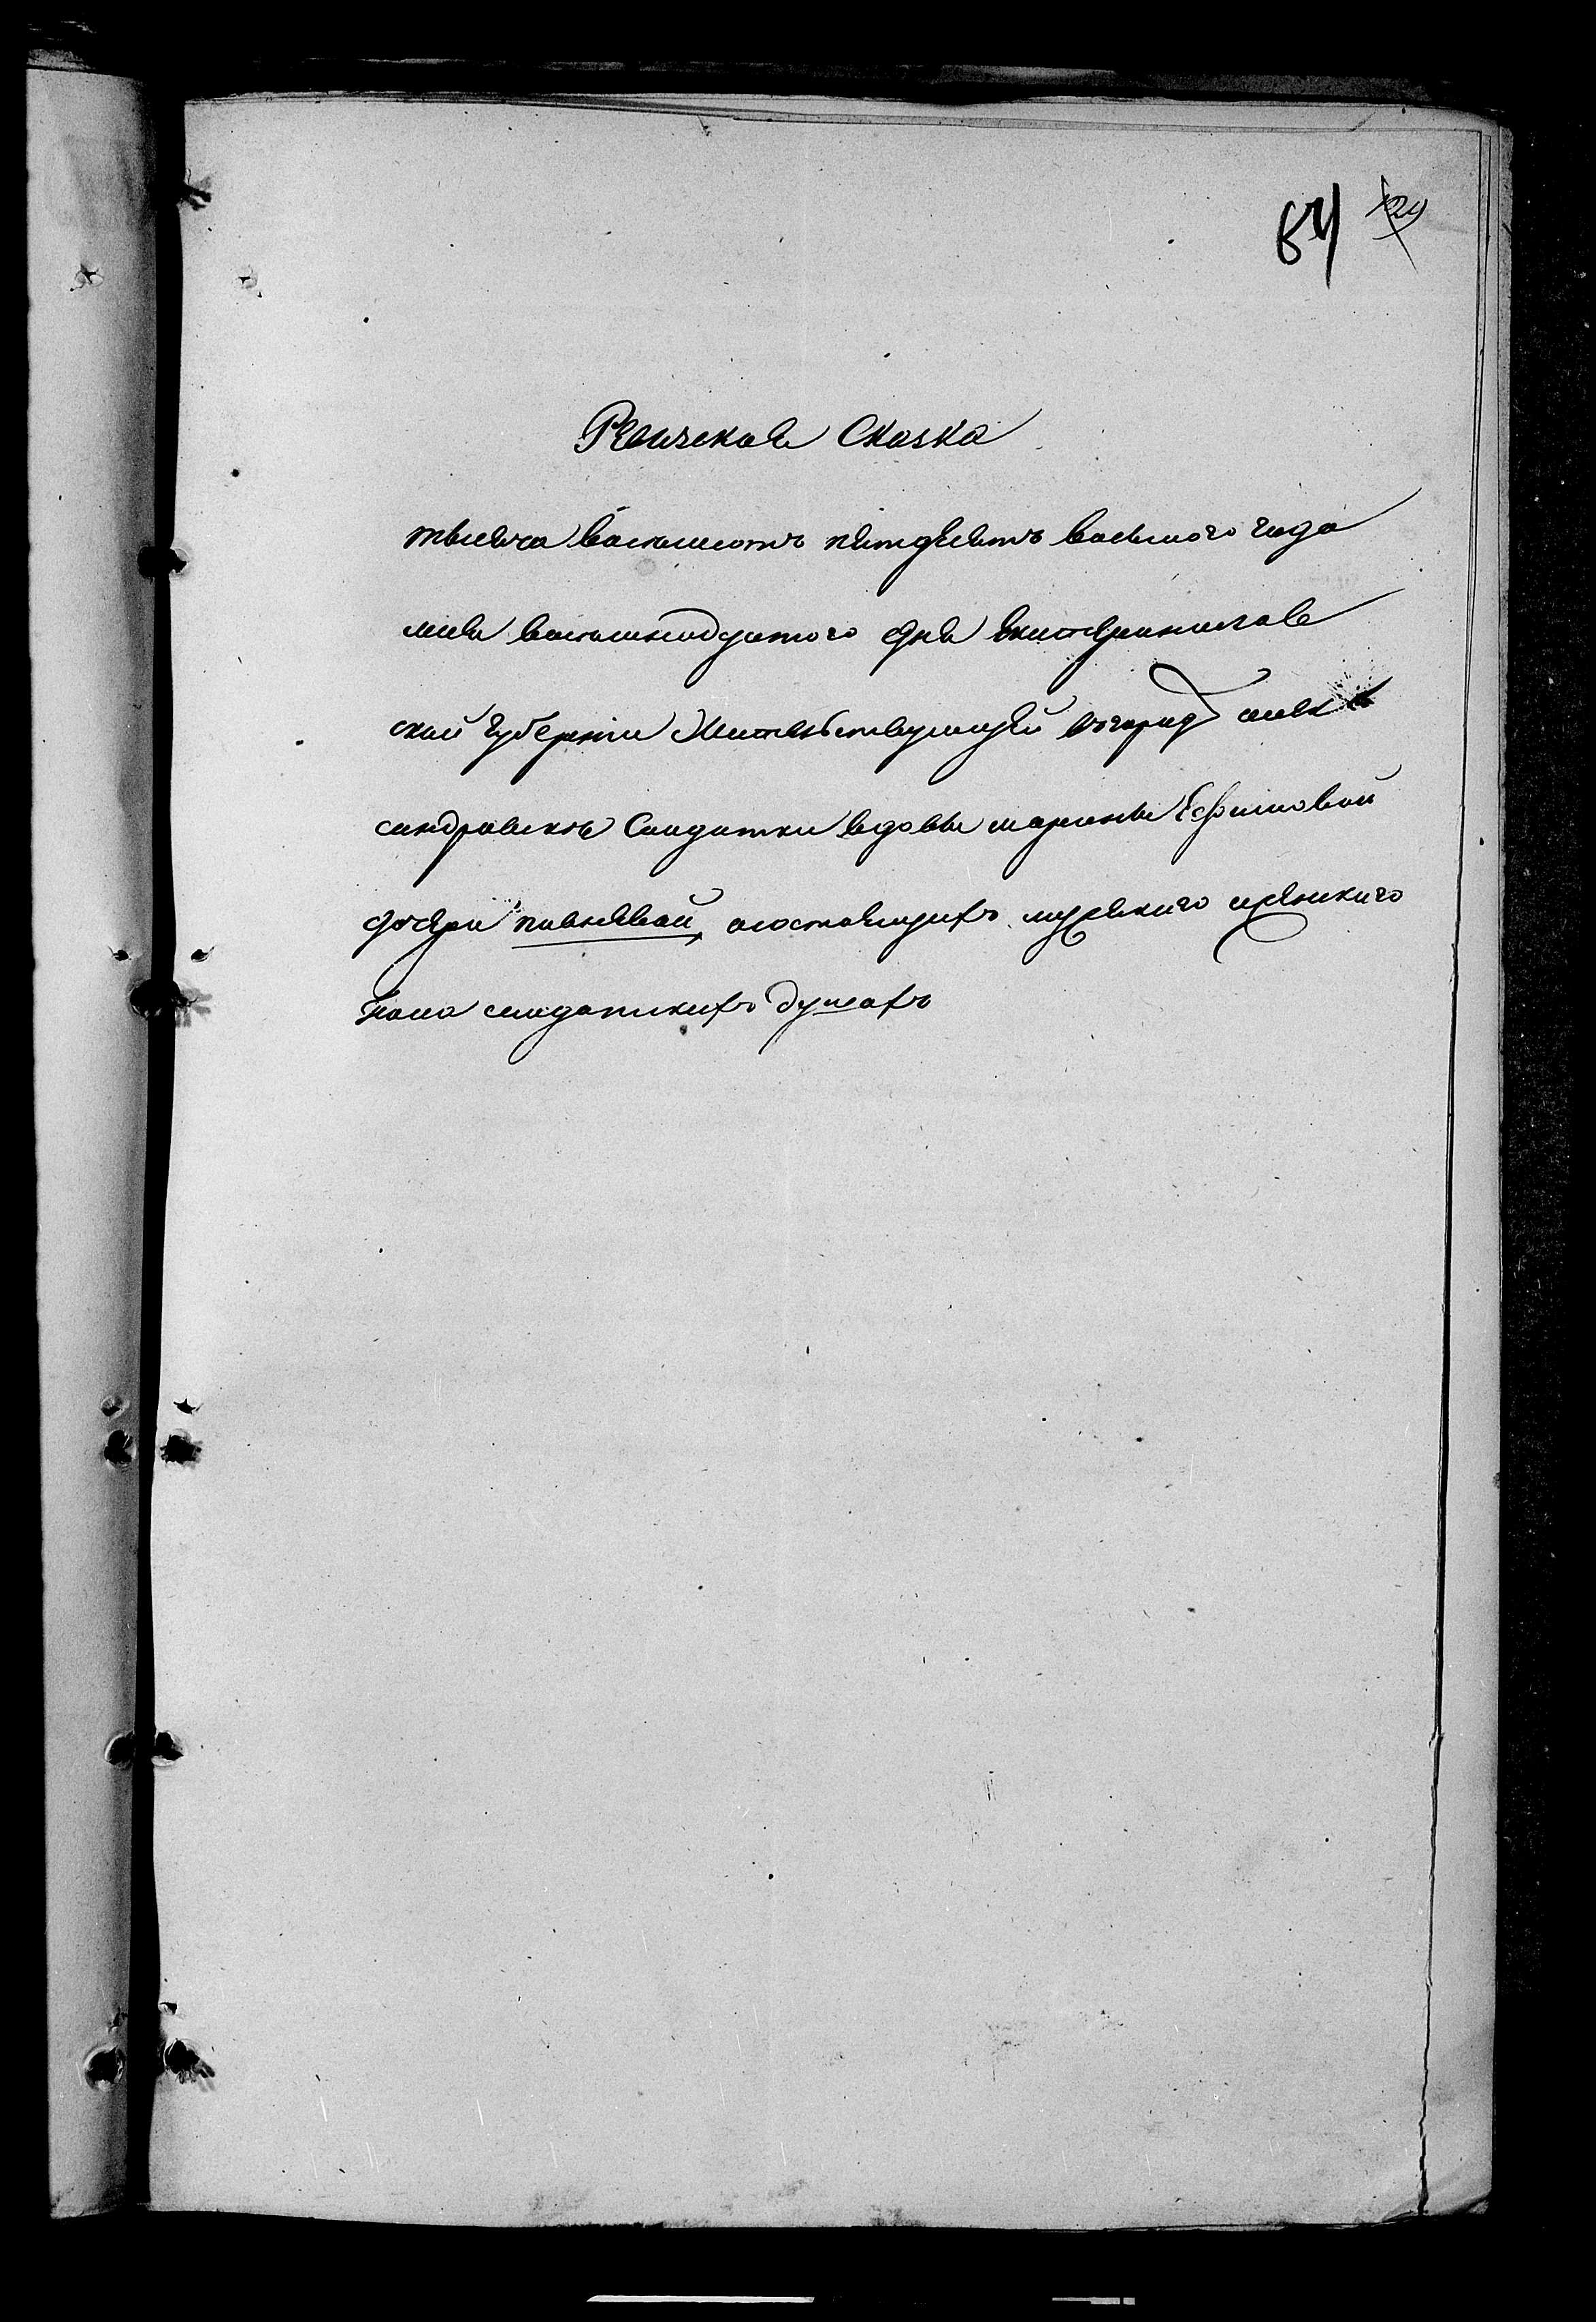 84 124
Ревизская Сказка
тысяча восемьсотъ пятдесятъ восьмого года
мая восемнадцатого дня Екатеринослав
ской губернiи Жительствующей вгороде алек
сандровске Салдатки вдовы марины Ефимовой
дочери павлевой, осостоящихъ мужскаго иженскаго
пола салдатскихъ душахъ